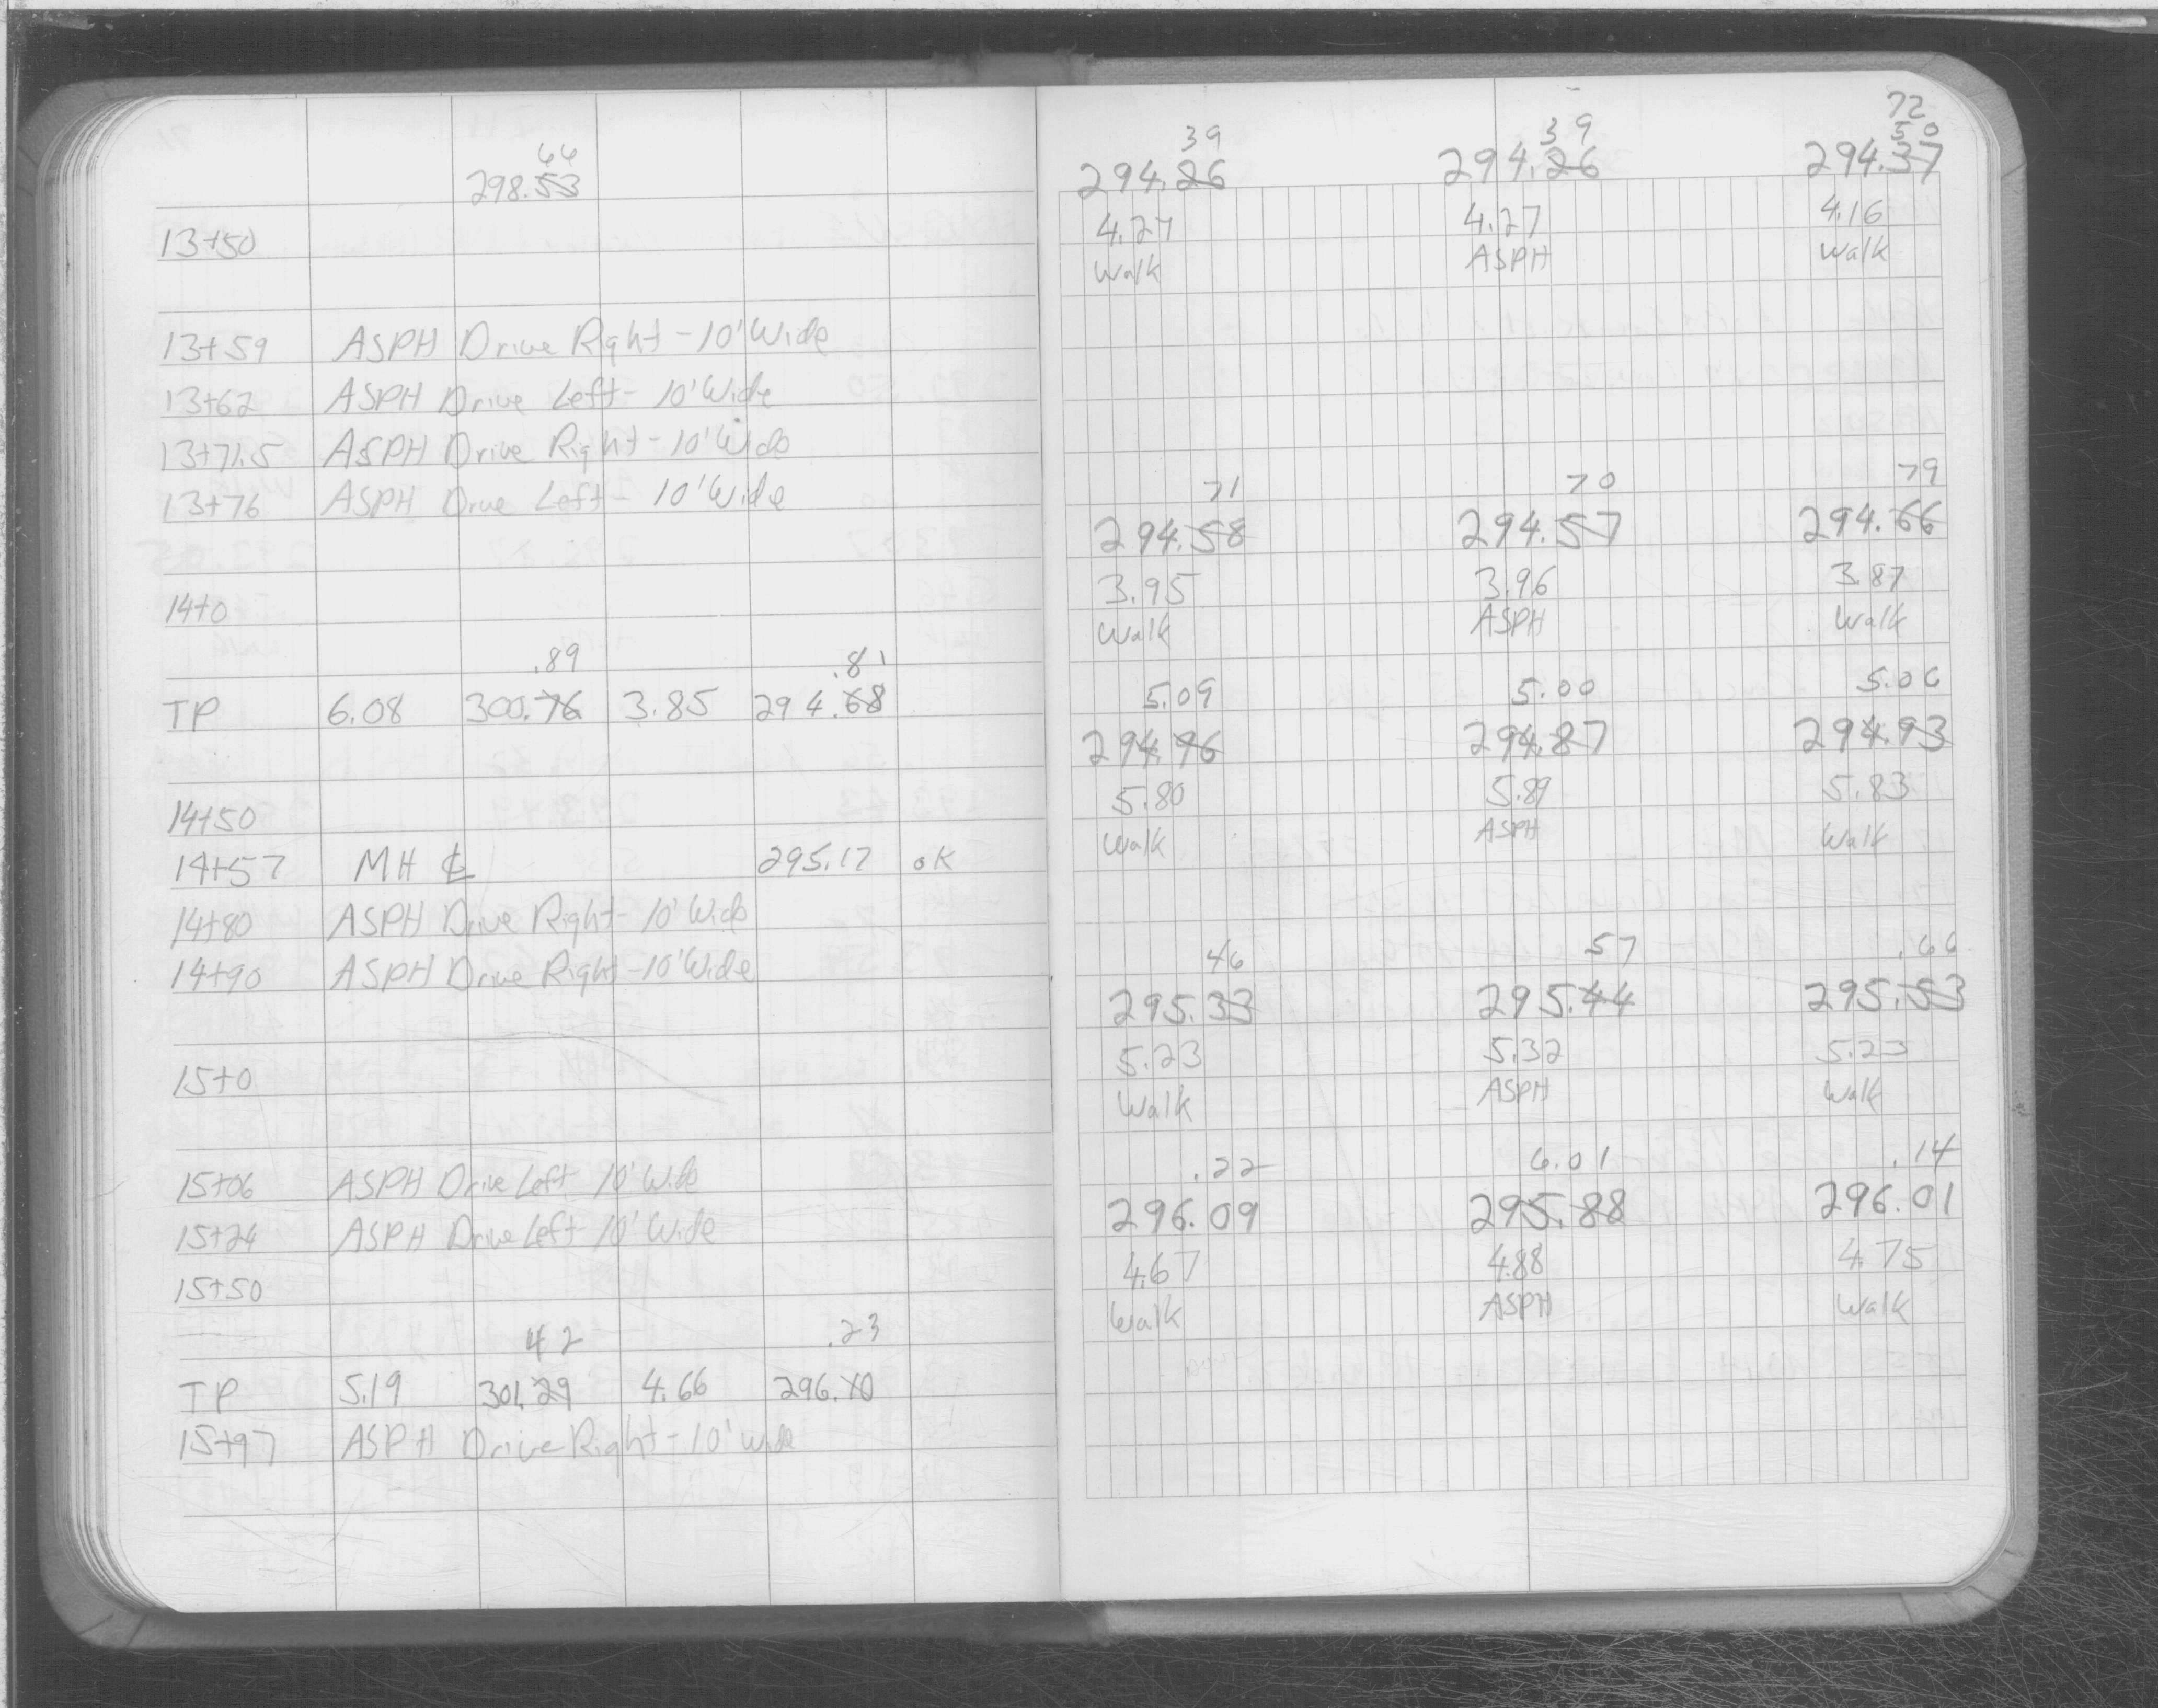 66
298.53
13+50
13+59 ASPH Drive Right - 10' Wide
13+62 ASPH Drive Left - 10' Wide
13+71.5 ASPH Drive Right - 10' Wide
13+76 ASPH Drive Left - 10' Wide
14+0
.89 .81
TP 6.08 300.76 3.85 294.68
14+50
14+57 MH ℄ 295.17 OK
14+80 ASPH Drive Right - 10' Wide
14+90 ASPH Drive Right - 10' Wide
15+0
15+06 ASPH Drive Left - 10' Wide
15+24 ASPH Drive Left - 10' Wide
15+50
42 .23
TP 5.19 301.29 4.66 296.10
15+97 ASPH Drive Right - 10' wide
72
39 39 50
294.26 294.26 294.37
4.27 4.27 4.16
Walk ASPH Walk
71 70 79
294.58 294.57 294.66
3.95 3.96 3.87
Walk ASPH Walk
5.09 5.00 5.06
294.96 294.87 294.93
5.80 5.89 5.83
Walk ASPH Walk
46 57 .66
295.33 295.44 295.53
5.23 5.32 5.23
Walk ASPH Walk
.22 6.01 .14
296.09 295.88 296.01
4.67 4.88 4.75
Walk ASPH Walk